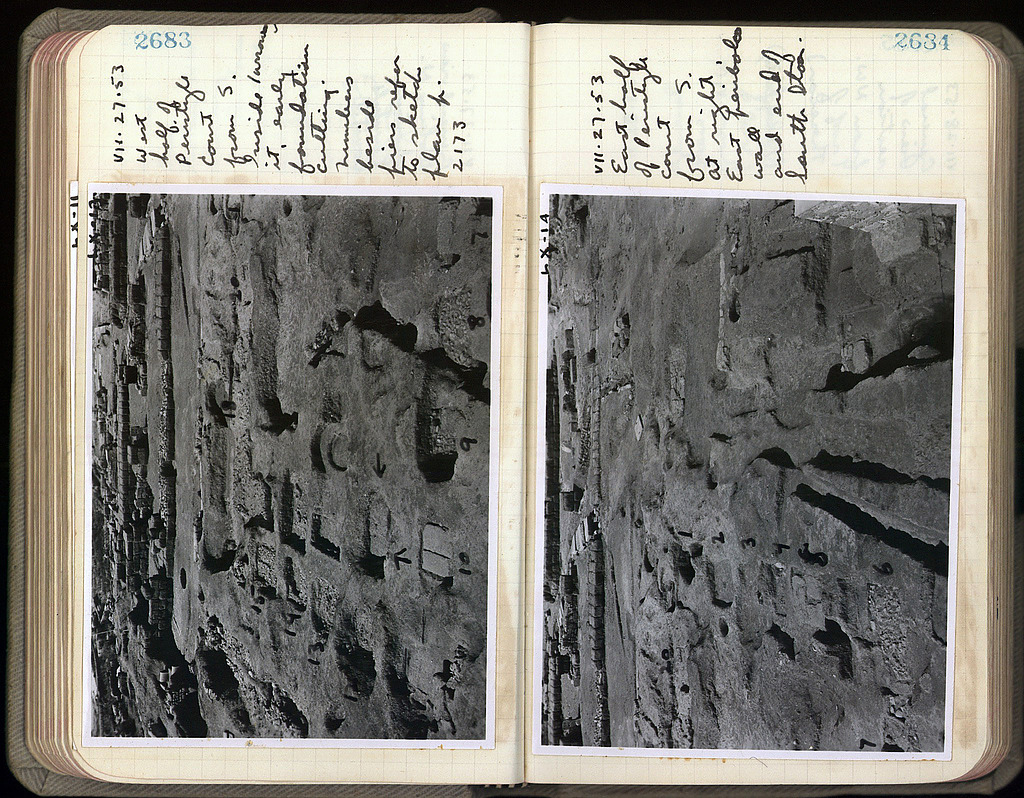 2683
VII·27·53
West
half of
Peristyle
Court
from S.
Inside
it, early
foundation
cutting.
Numbers
beside
piers refer
to sketch
plan p.
2173
LX-11
7
8
9
10
13
14
2684
VII·27·53
East half
of Peristyle
Court
from S.
At right
East peribolos
wall and
end of
South Stoa.
LX-14
1
2
3
4
5
6
7